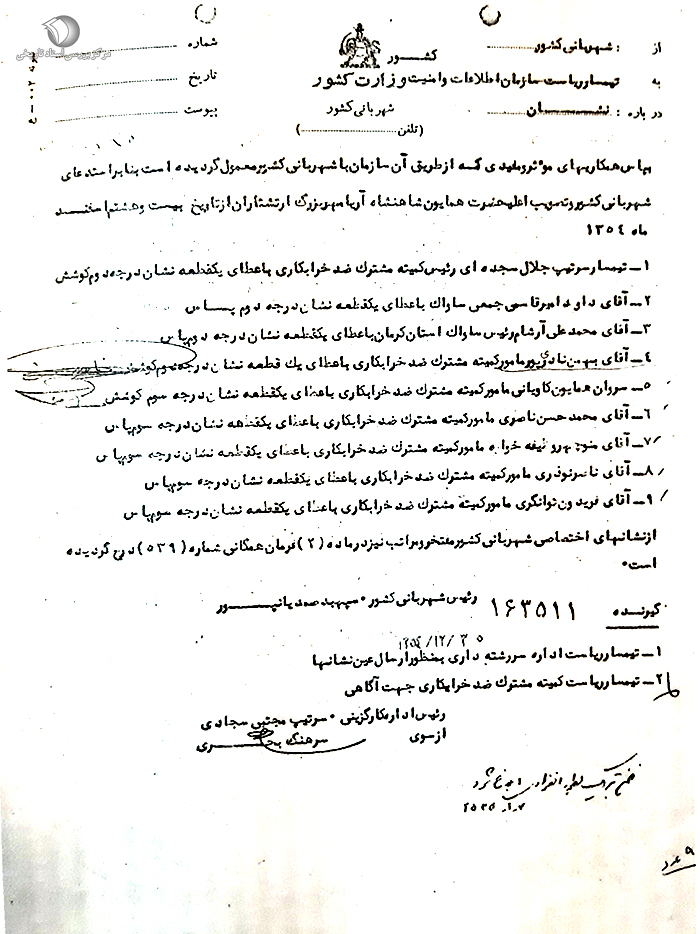 مرکز بررسی اسناد تاریخی
از : شهربانی کشور
کشور
شماره
به تیمسار ریاست سازمان اطلاعات و امنیت وزارت کشور
تاریخ
در باره : نشان
شهربانی کشور
پیوست
(تلفن)
بپاس همکاریهای موثر و مفیدی که از طریق آن سازمان با شهربانی کشور معمول گردیده است بنابر استدعای
شهربانی کشور و تصویب اعلیحضرت همایون شاهنشاه آریامهر بزرگ ارتشتاران از تاریخ بیست و هشتم اسفند
ماه ۱۳۵۴
۱ـ تیمسار سرتیپ جلال سجده ای رئیس کمیته مشترك ضد خرابکاری باعطای یکقطعه نشان درجه دوم کوشش
۲ـ آقای داود امیرقاسمی جمعی ساواك باعطای یکقطعه نشان درجه دوم پاس
۳ـ آقای محمد علی آرشام رئیس ساواك استان کرمان باعطای یکقطعه نشان درجه دوم پاس
۴ـ آقای بهمن نادری پور مامور کمیته مشترك ضد خرابکاری باعطای یك قطعه نشان درجه دوم کوشش
۵ـ سروان همایون کاویانی مامور کمیته مشترك ضد خرابکاری باعطای یکقطعه نشان درجه سوم کوشش
۶ـ آقای محمد حسن ناصری مامور کمیته مشترك ضد خرابکاری باعطای یکقطعه نشان درجه سوم پاس
۷ـ آقای منوچهر وظیفه خواه مامور کمیته مشترك ضد خرابکاری باعطای یکقطعه نشان درجه سوم پاس
۸ـ آقای ناصر نوذری مامور کمیته مشترك ضد خرابکاری باعطای یکقطعه نشان درجه سوم پاس
۹ـ آقای فریدون توانگری مامور کمیته مشترك ضد خرابکاری باعطای یکقطعه نشان درجه سوم پاس
از نشانهای اختصاصی شهربانی کشور مفتخر و مراتب نیز در ماده (۲) فرمان همگانی شماره (۵۳۹) درج گردیده
است۰
رئیس شهربانی کشور ۰ سپهبد صمدیانپور
گیرنده ۱۶۳۵۱۱
۱۳۵۴/۱۲/۳۵
۱ـ تیمسار ریاست اداره سررشته داری بمنظور ارسال عین نشانها
۲ـ تیمسار ریاست کمیته مشترك ضد خرابکاری جهت آگاهی
رئیس اداره کارگزینی ۰ سرتیپ مجتبی سجادی
از سوی سرهنگ
ضمن تبریک
۹ عدد